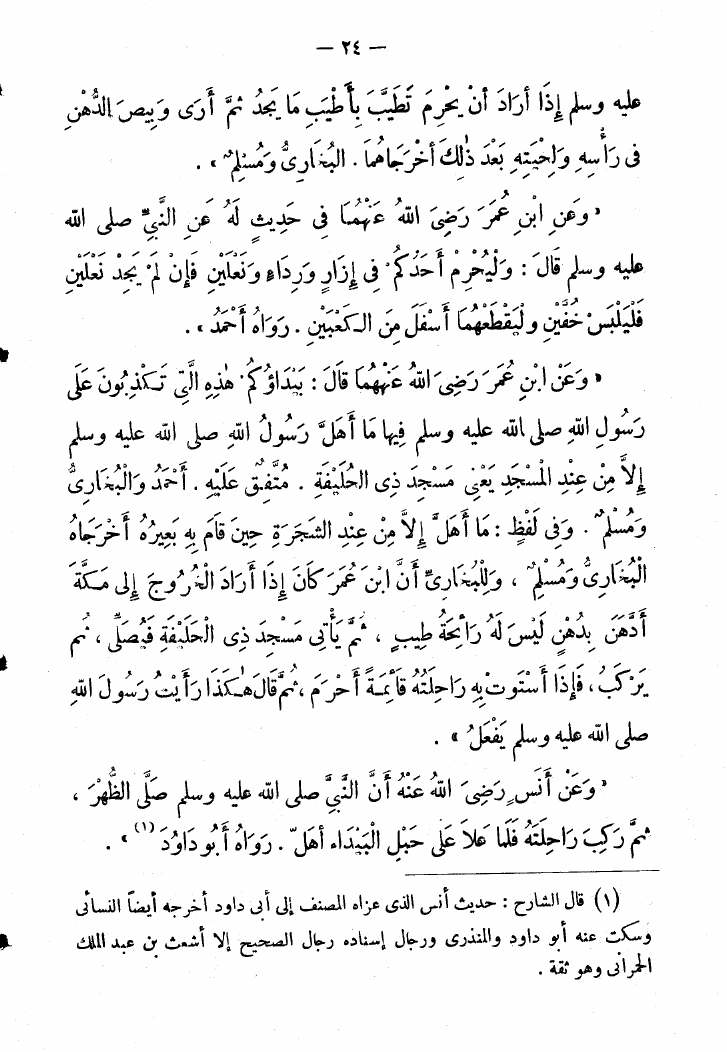 — ٢٤ —
عليه وسلم إِذَا أَرَادَ أَنْ يُحْرِمَ تَطَيَّبَ بِأَطْيَبِ مَا يَجِدُ ثُمَّ أَرَى وَبِيصَ الدُّهْنِ
فِى رَأْسِهِ وَلِحْيَتِهِ بَعْدَ ذٰلِكَ أَخْرَجَاهُمَا . البُخَارِىُّ وَمُسْلِمٌ » .
« وَعَنِ ابْنِ عُمَرَ رَضِىَ اللهُ عَنْهُمَا فِى حَدِيثٍ لَهُ عَنِ النَّبِىِّ صلى الله
عليه وسلم قَالَ : وَلْيُحْرِمْ أَحَدُكُمْ فِى إِزَارٍ وَرِدَاءٍ وَنَعْلَيْنِ فَإِنْ لَمْ يَجِدْ نَعْلَيْنِ
فَلْيَلْبَسْ خُفَّيْنِ وَلْيَقْطَعْهُمَا أَسْفَلَ مِنَ الكَعْبَيْنِ . رَوَاهُ أَحْمَدُ » .
« وَعَنْ ابْنِ عُمَرَ رَضِىَ اللهُ عَنْهُمَا قَالَ : بَيْدَاؤُكُمْ هٰذِهِ الَّتِى تَكْذِبُونَ عَلَى
رَسُولِ اللهِ صلى الله عليه وسلم فِيهَا مَا أَهَلَّ رَسُولُ اللهِ صلى الله عليه وسلم
إِلاَّ مِنْ عِنْدِ المَسْجَدِ يَعْنِى مَسْجِدَ ذِى الحُلَيْفَةِ . مُتَّفِقٌ عَلَيْهِ . أَحْمَدُ وَالْبُخَارِىُّ
وَمُسْلِمٌ . وَفِى لَفْظٍ : مَا أَهَلَّ إِلاَّ مِنْ عِنْدِ الشَّجَرَةِ حِينَ قَامَ بِهِ بَعِيرُهُ أَخْرَجَاهُ
الْبُخَارِىُّ وَمُسْلِمٌ ، وَلِلْبُخَارِىِّ أَنَّ ابْنَ عُمَرَ كَانَ إِذَا أَرَادَ الْخُرُوجَ إِلى مَكَّةَ
أَدَّهَنَ بِدُهْنٍ لَيْسَ لَهُ رَائِحَةُ طِيبٍ ، ثُمَّ يَأْتِى مَسْجِدَ ذِى الْحَلَيْفَةِ فَيُصَلِّى ، ثُم
يَرْكَبُ ، فَإِذَا أَسْتَوتْ بِهِ رَاحِلَتُهُ قَائِمَةً أَحْرَمَ ، ثُمَّ قَالَ هٰكَذَا رَأَيْتُ رَسُولَ اللهِ
صلى الله عليه وسلم يَفْعَلُ » .
« وَعَنْ أَنَسٍ رَضِىَ اللهُ عَنْهُ أَنَّ النَّبِىَّ صلى الله عليه وسلم صَلَّى الظُّهْرَ ،
ثُمَّ رَكِبَ رَاحِلَتَهُ فَلَمَّا عَلاَ عَلَى حَبْلِ الْبَيْدَاءِ أهَلَّ . رَوَاهُ أَبُو دَاوُدَ (١) » .
(١) قال الشارح : حديث أنس الذى عزاه المصنف إلى أبى داود أخرجه أيضاً النسائى
وسكت عنه أبو داود والمنذرى ورجال إسناده رجال الصحيح إلا أشعث بن عبد الملك
الحمرانى وهو ثقة .